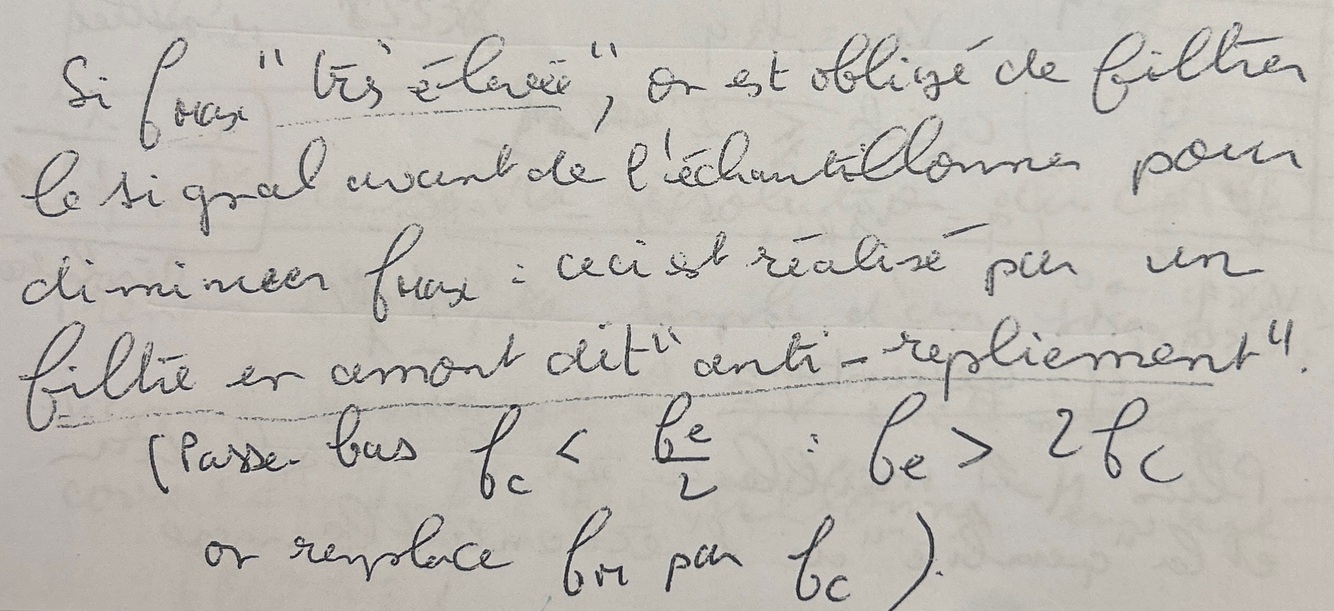 Si fmax "très élevée", on est obligé de filtrer
le signal avant de l'échantillonner pour
diminuer fmax : ceci est réalisé par un
filtre en amont dit "anti-repliement".
(Passe-bas fc < fe/2 : fe > 2fc
on remplace fM par fc).